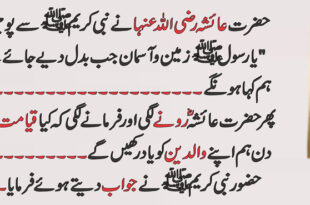 حضرت عائشہ رضی اللہ عنہا نے نبی کریم ﷺ سے
"یا رسول ﷺ زمین و آسمان جب بدل دیے جائے
ہم کہا ہونگے۔۔۔۔۔۔۔۔۔۔۔۔۔۔۔۔
پھر حضرت عائشہؓ رونے لگی اور فرمانے لگی کہ کیا قیامت
دن ہم اپنے والدین کو یاد رکھیں گے۔۔۔۔۔۔۔۔۔۔
حضور نبی کریم ﷺ نے جواب دیتے ہوئے فرمایا